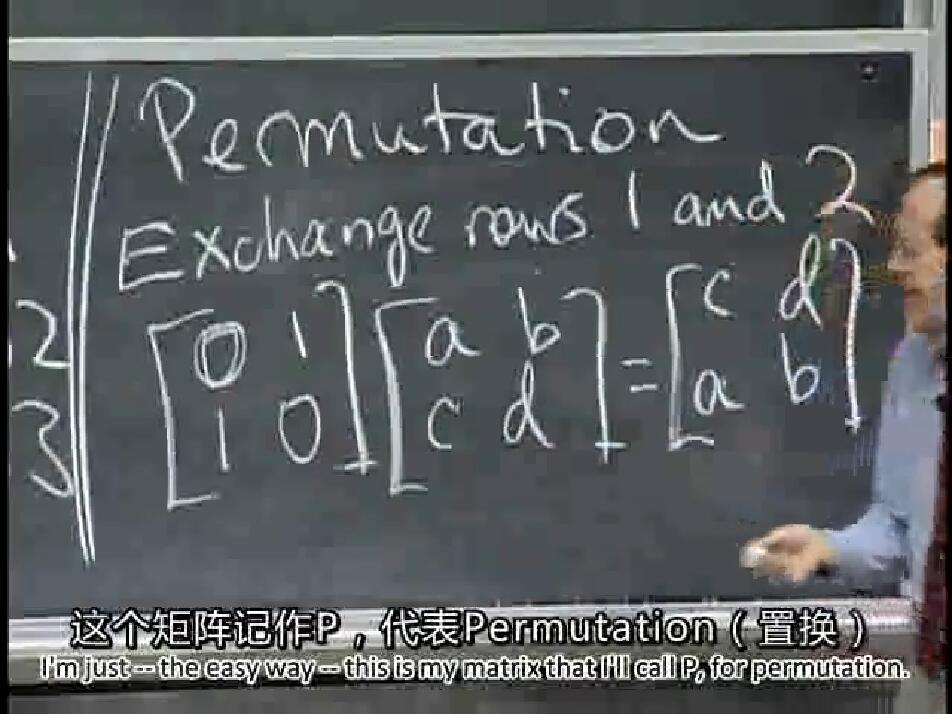 Permutation
Exchange rows 1 and 2
[0 1] [a b] = [c d]
[1 0] [c d] [a b]
2
3
这个矩阵记作P，代表Permutation（置换）
I'm just -- the easy way -- this is my matrix that I'll call P, for permutation.